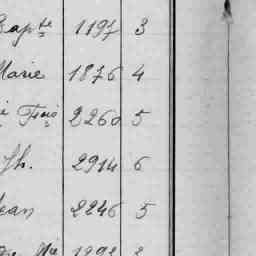 Bapte 1197 3
Marie 1876 4
Fçois 2260 5
Jh. 2914 6
Jean 2246 5